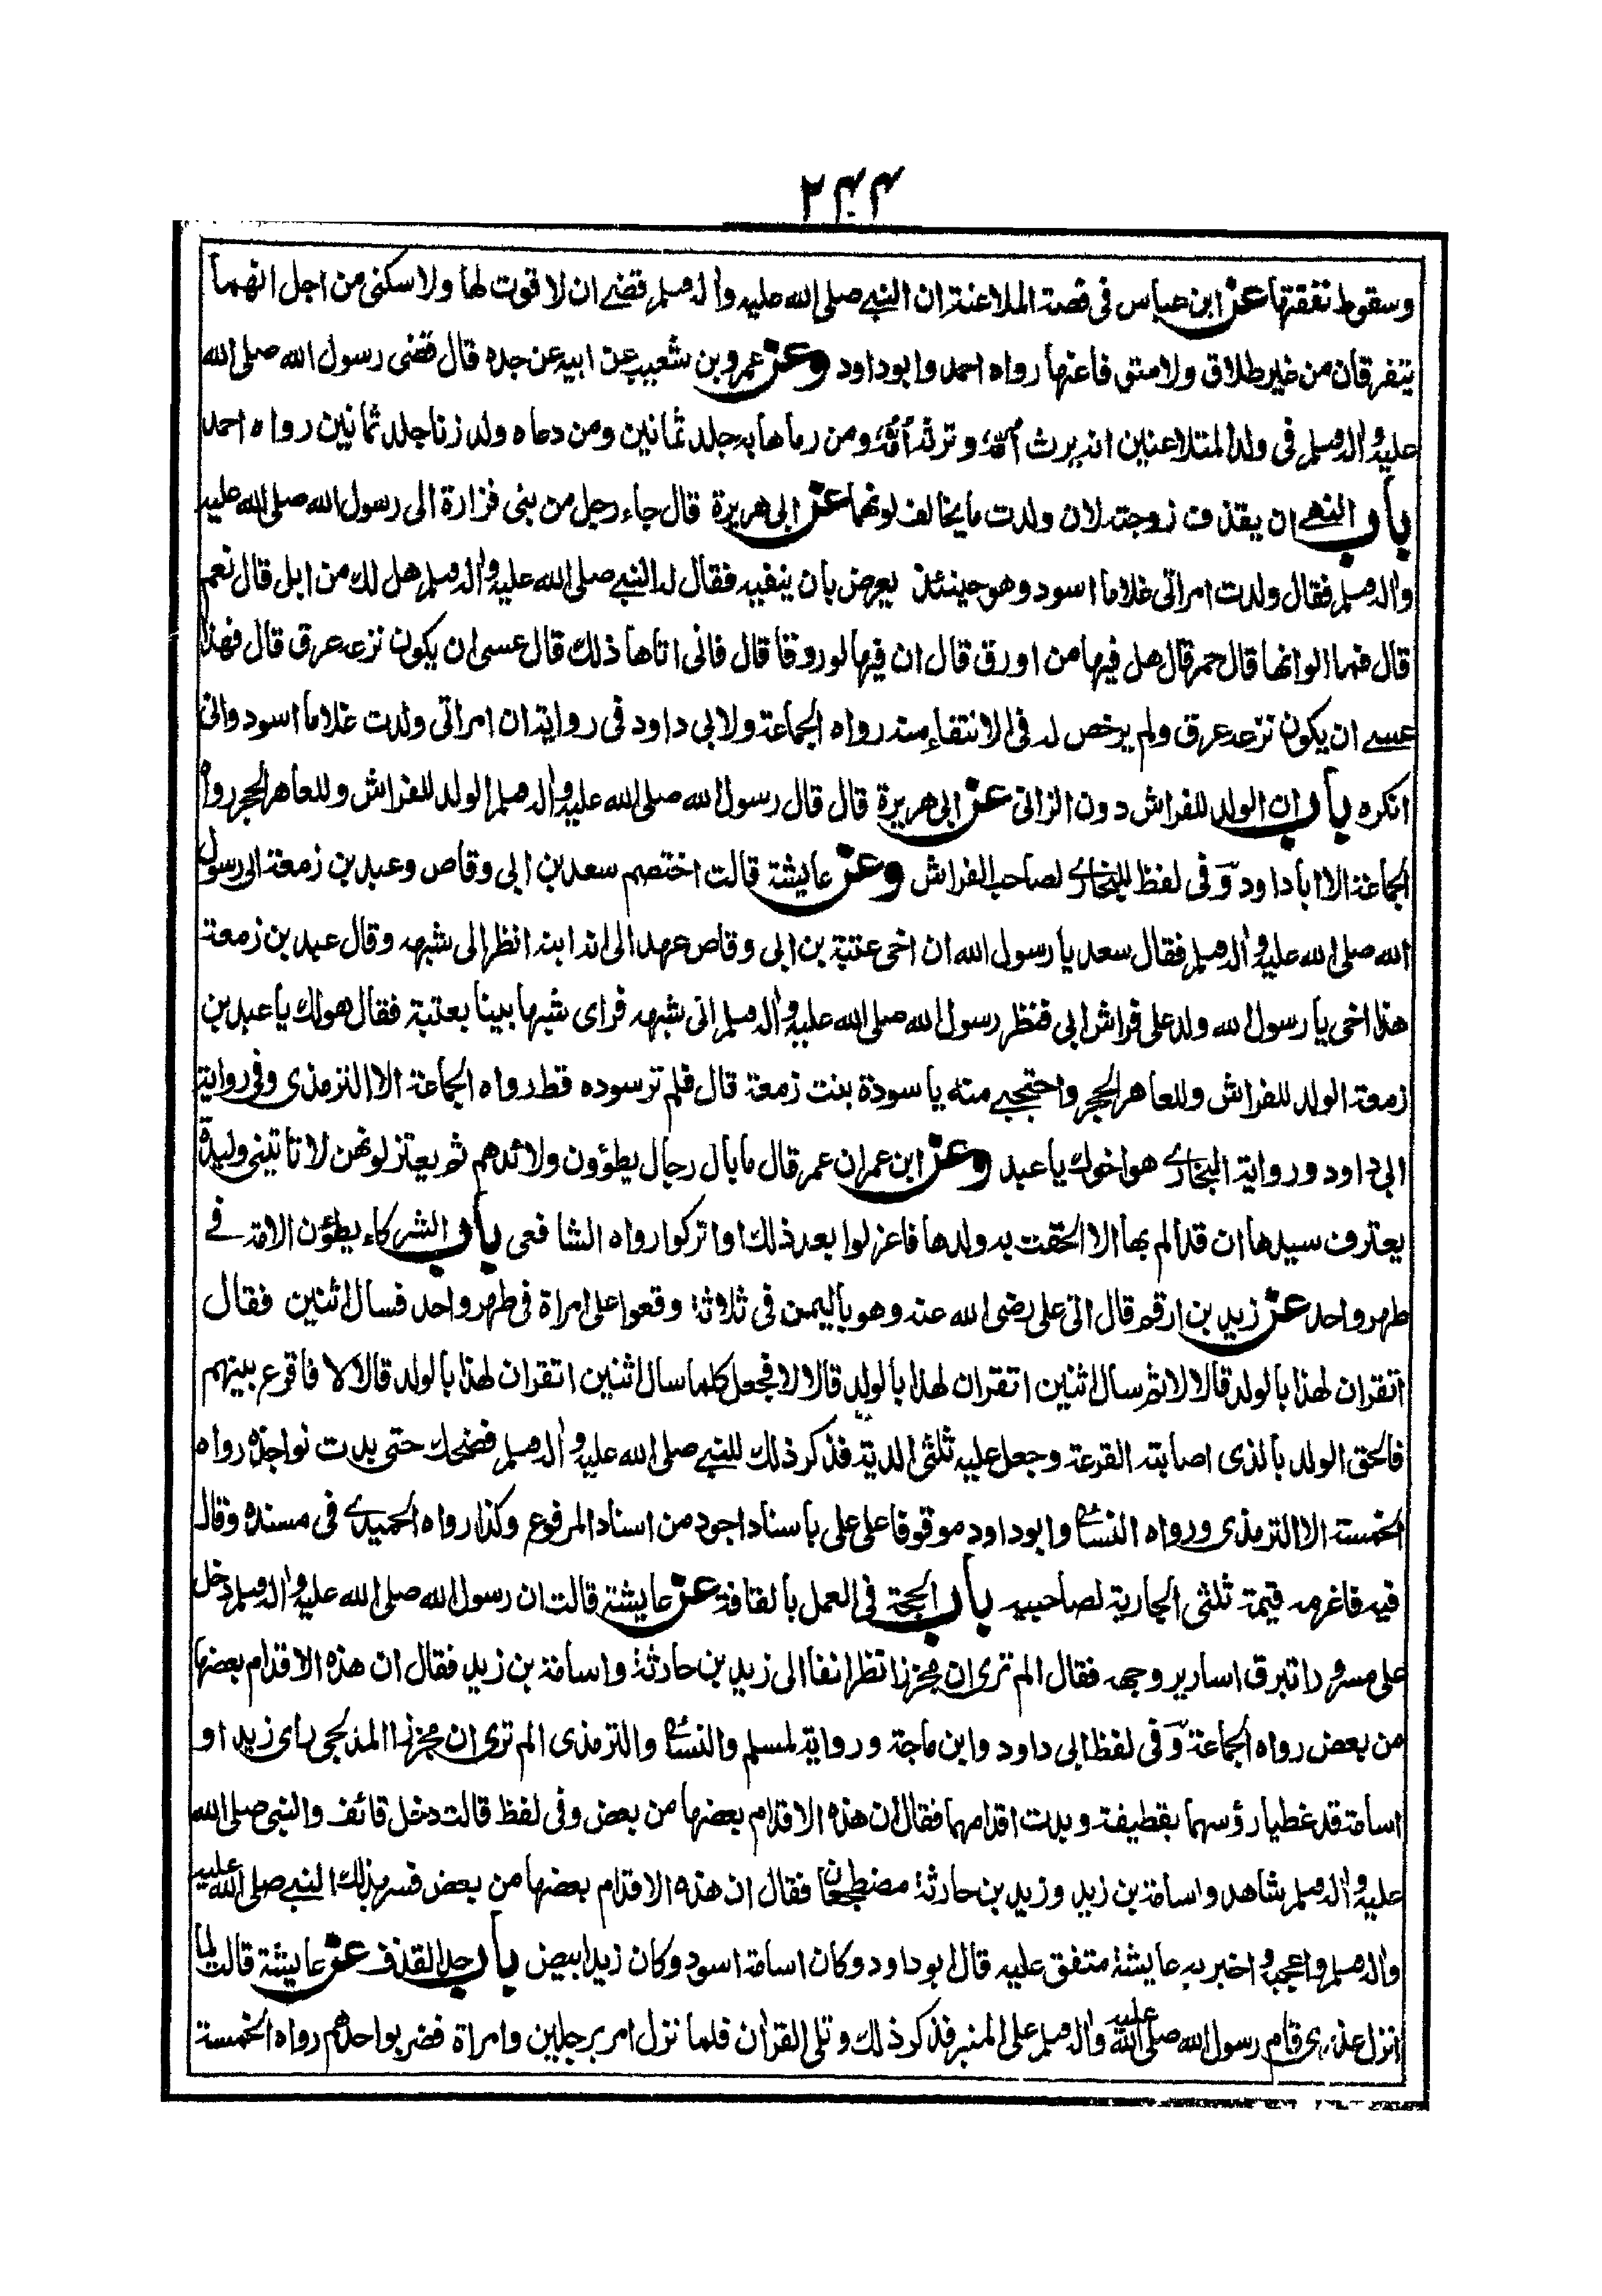 ٢٤٤
وسقوط نفقتها عن ابن عباس فى قصة الملاعنة ان النبي صلى الله عليه واله وسلم قضى ان لا قوت لها ولا سكنى من اجل انهما
يتفرقان من غير طلاق ولا متوفى عنها رواه احمد وابو داود وعن عمرو بن شعيب عن ابيه عن جده قال قضى رسول الله صلى الله
عليه واله وسلم فى ولد المتلاعنين انه يرث امه وترثه امه ومن رماها به جلد ثمانين ومن دعاه ولد زنا جلد ثمانين رواه احمد
باب النهى ان يقذف زوجته لان ولدت ما يخالف لونهما عن ابى هريرة قال جاء رجل من بنى فزارة الى رسول الله صلى الله عليه
واله وسلم فقال ولدت امراتى غلاما اسود وهو حينئذ يعرض بان ينفيه فقال له النبي صلى الله عليه واله وسلم هل لك من ابل قال نعم
قال فما الوانها قال حمر قال هل فيها من اورق قال ان فيها لورقا قال فانى اتاها ذلك قال عسى ان يكون نزعه عرق قال فهذا
عسى ان يكون نزعه عرق ولم يرخص له فى الانتفاء منه رواه الجماعة ولابى داود فى رواية ان امراتى ولدت غلاما اسود وانى
انكره باب ان الولد للفراش دون الزانى عن ابى هريرة قال قال رسول الله صلى الله عليه واله وسلم الولد للفراش وللعاهر الحجر رواه
الجماعة الا ابا داود وفى لفظ للبخارى لصاحب الفراش وعن عايشة قالت اختصم سعد بن ابى وقاص وعبد بن زمعة الى رسول
الله صلى الله عليه واله وسلم فقال سعد يا رسول الله ان اخى عتبة بن ابى وقاص عهد الى انه ابنه انظر الى شبهه وقال عبد بن زمعة
هذا اخى يا رسول الله ولد على فراش ابى فنظر رسول الله صلى الله عليه واله وسلم الى شبهه فراى شبها بينا بعتبة فقال هو لك يا عبد بن
زمعة الولد للفراش وللعاهر الحجر واحتجبى منه يا سودة بنت زمعة قال فلم تر سوده قط رواه الجماعة الا الترمذى وفى رواية
ابى داود ورواية البخارى هو اخوك يا عبد وعن ابن عمر ان عمر قال ما بال رجال يطؤون ولائدهم ثم يعتزلونهن لا تاتينى وليدة
يعترف سيدها ان قد الم بها الا الحقت به ولدها فاعزلوا بعد ذلك او اتركوا رواه الشافعى باب الشركاء يطؤن الامة فى
طهر واحد عن زيد بن ارقم قال اتى على رضى الله عنه وهو باليمن فى ثلاثة وقعوا على امراة فى طهر واحد فسال اثنين فقال
اتقران لهذا بالولد قالا لا ثم سال اثنين اتقران لهذا بالولد قالا لا فجعل كلما سال اثنين اتقران لهذا بالولد قالا لا فاقرع بينهم
فالحق الولد بالذى اصابته القرعة وجعل عليه ثلثى الدية فذكر ذلك للنبي صلى الله عليه واله وسلم فضحك حتى بدت نواجذه رواه
الخمسة الا الترمذى ورواه النسائى وابو داود موقوفا على على باسناد اجود من اسناد المرفوع وكذا رواه الحميدى فى مسنده وقال
فيه فاغرمه قيمة ثلثى الجارية لصاحبيه باب الحجة فى العمل بالقافة عن عايشة قالت ان رسول الله صلى الله عليه واله وسلم دخل
على مسرورا تبرق اسارير وجهه فقال الم ترى ان مجززا نظر انفا الى زيد بن حارثة واسامة بن زيد فقال ان هذه الاقدام بعضها
من بعض رواه الجماعة وفى لفظ ابى داود وابن ماجة ورواية لمسلم والنسائى والترمذى الم ترى ان مجززا المدلجى راى زيدا و
اسامة قد غطيا رؤسهما بقطيفة وبدت اقدامهما فقال ان هذه الاقدام بعضها من بعض وفى لفظ قالت دخل قائف والنبى صلى الله
عليه واله وسلم شاهد واسامة بن زيد وزيد بن حارثة مضطجعان فقال ان هذه الاقدام بعضها من بعض فسر بذلك النبي صلى الله عليه
واله وسلم واعجبه واخبر به عايشة متفق عليه قال ابو داود وكان اسامة اسود وكان زيد ابيض باب حد القذف عن عايشة قالت لما
انزل عذرى قام رسول الله صلى الله عليه واله وسلم على المنبر فذكر ذلك وتلى القران فلما نزل امر برجلين وامراة فضربوا حدهم رواه الخمسة